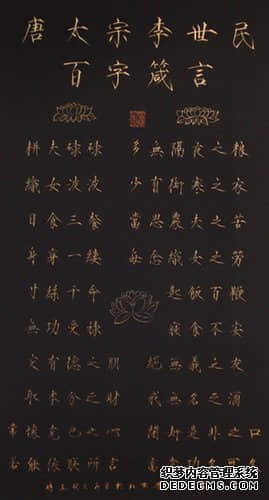 唐太宗李世民
百字箴言
耕夫碌碌 多無隔夜之粮
織女波波 少有御寒之衣
日食三餐 當思農夫之苦
身穿一缕 每念織女之劳
寸絲千命 匙飯百鞭
無功受禄 寢食不安
交有德之朋 絕無義之友
取本分之財 戒無名之酒
常懷克己之心 閉却是非之口
若能依朕所言
织梦内容管理系统
DEDECMS.COM